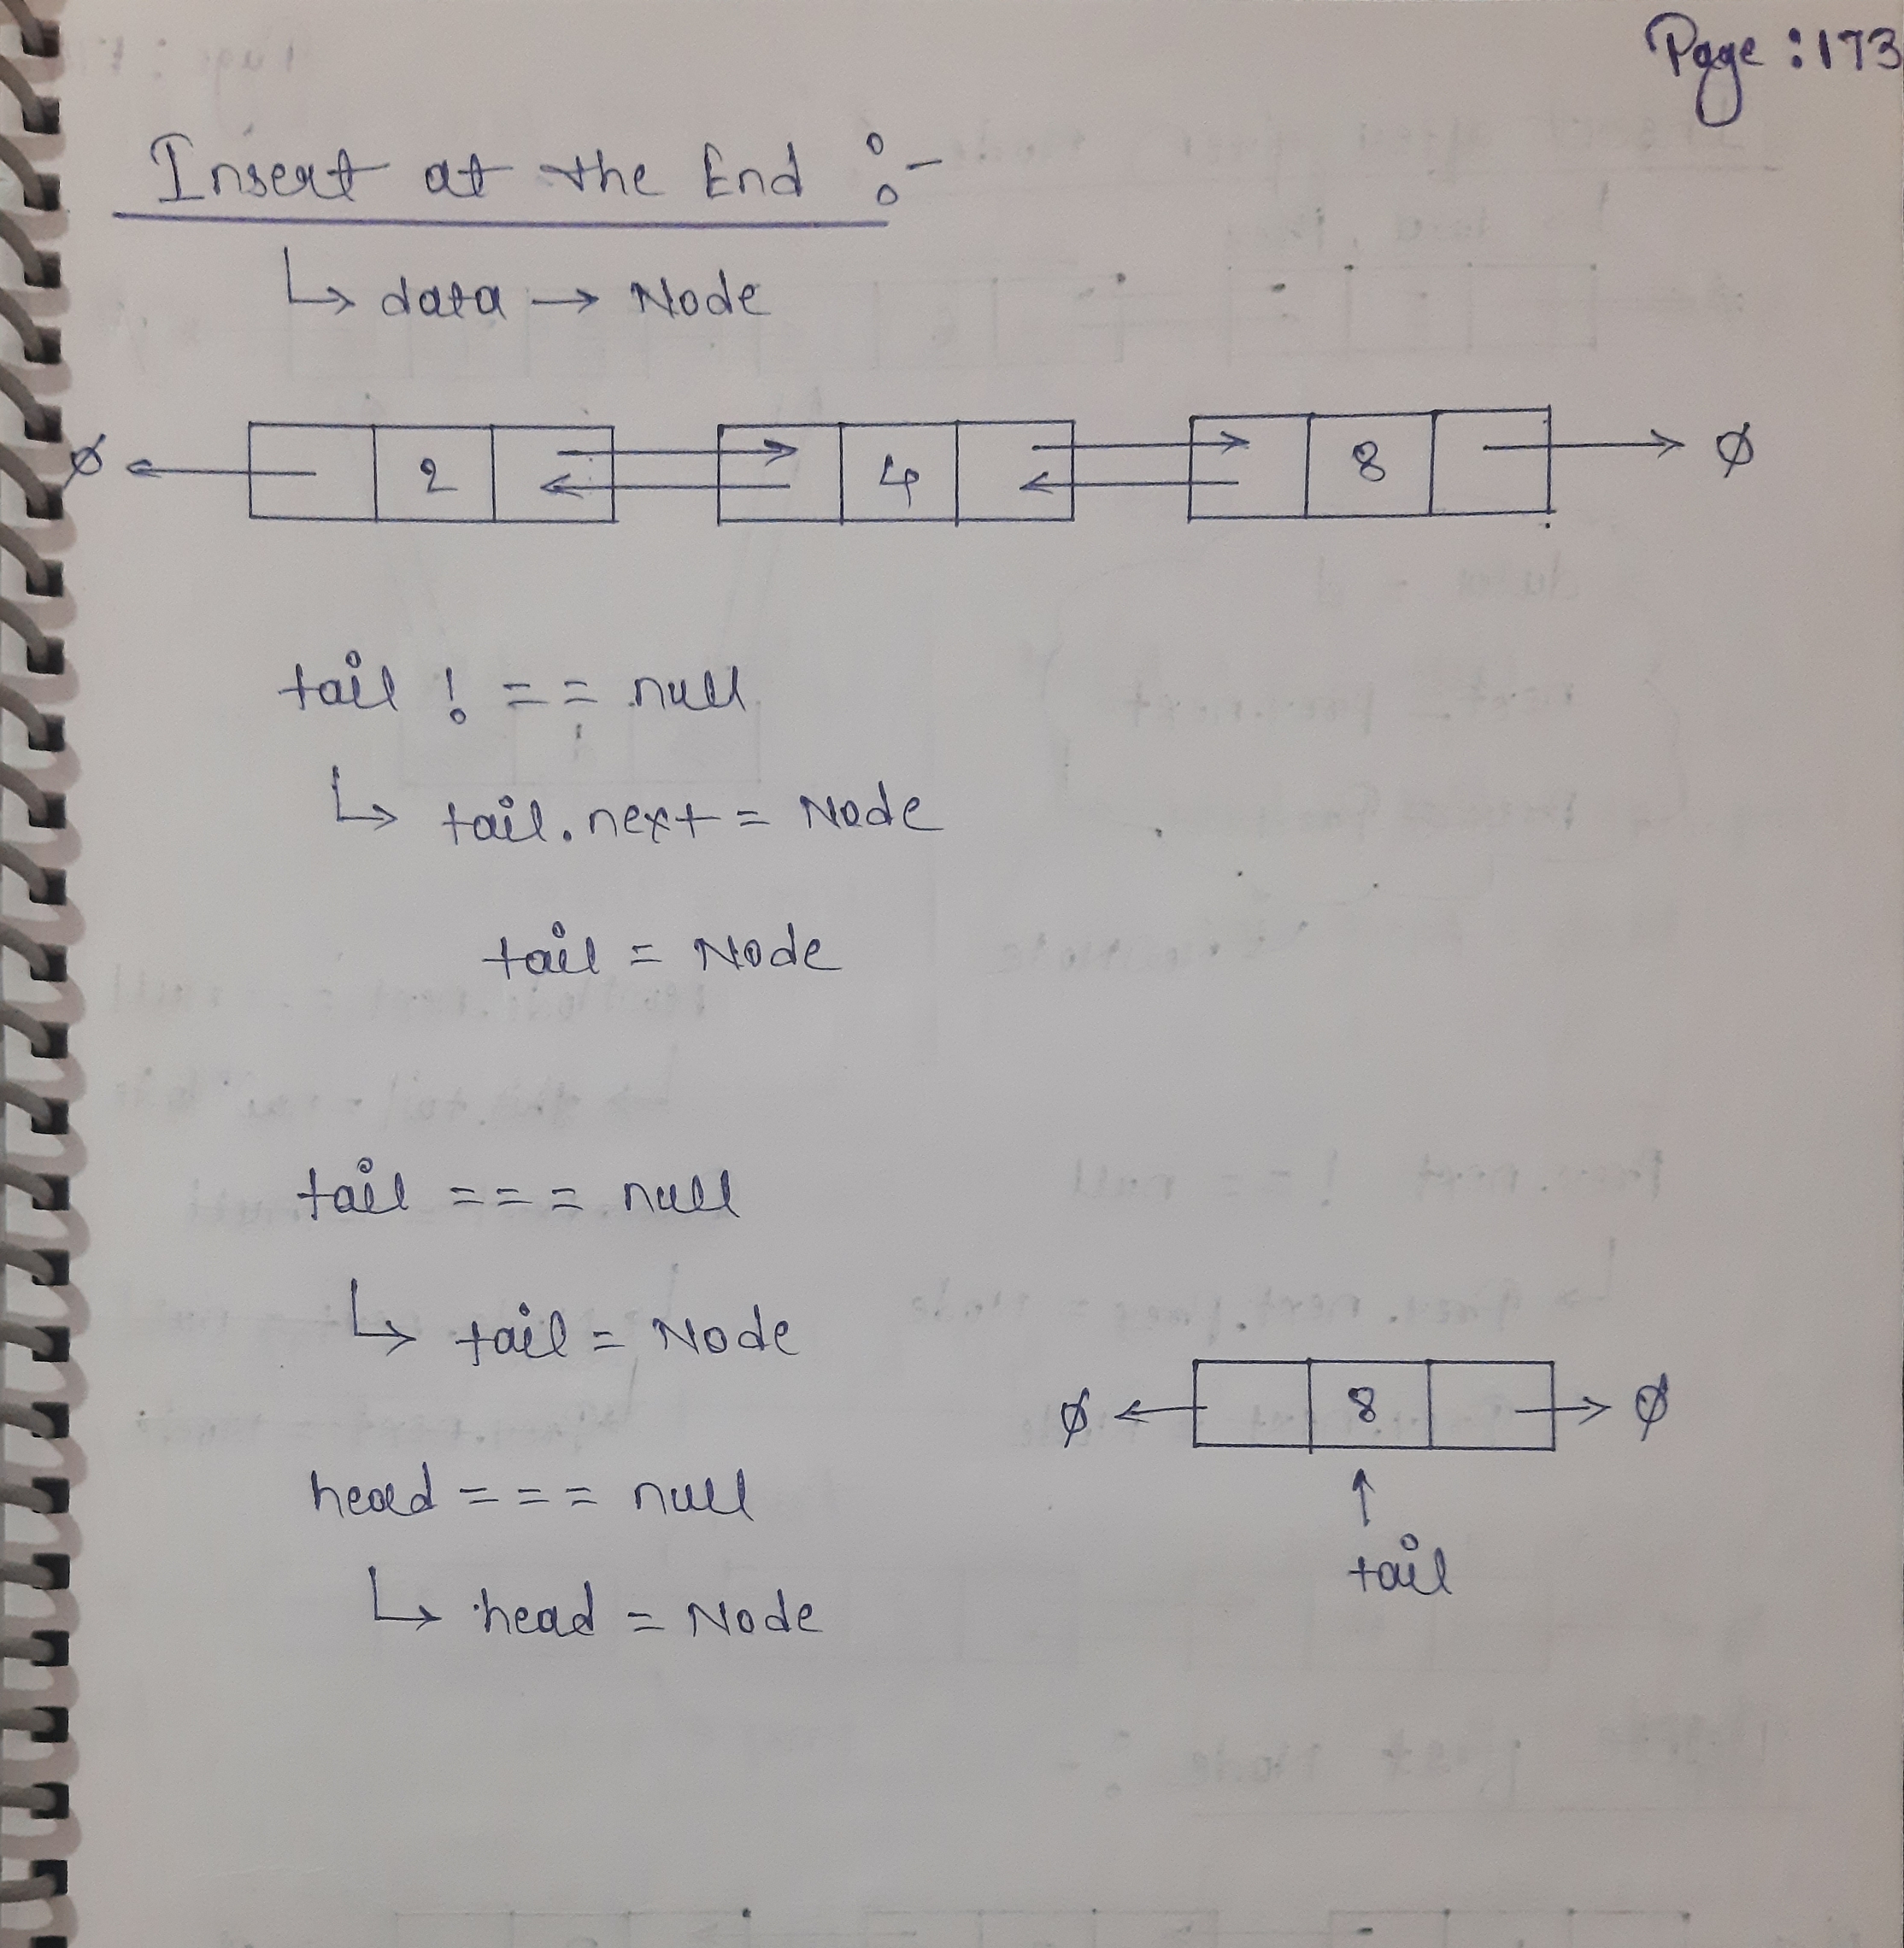 Page : 173
Insert at the End :-
↳ data → Node
∅ ← 2 ⇄ 4 ⇄ 8 → ∅
tail ! = = null
↳ tail.next = Node
tail = Node
tail = = = null
↳ tail = Node
∅ ← 8 → ∅
↑
tail
head = = = null
↳ head = Node